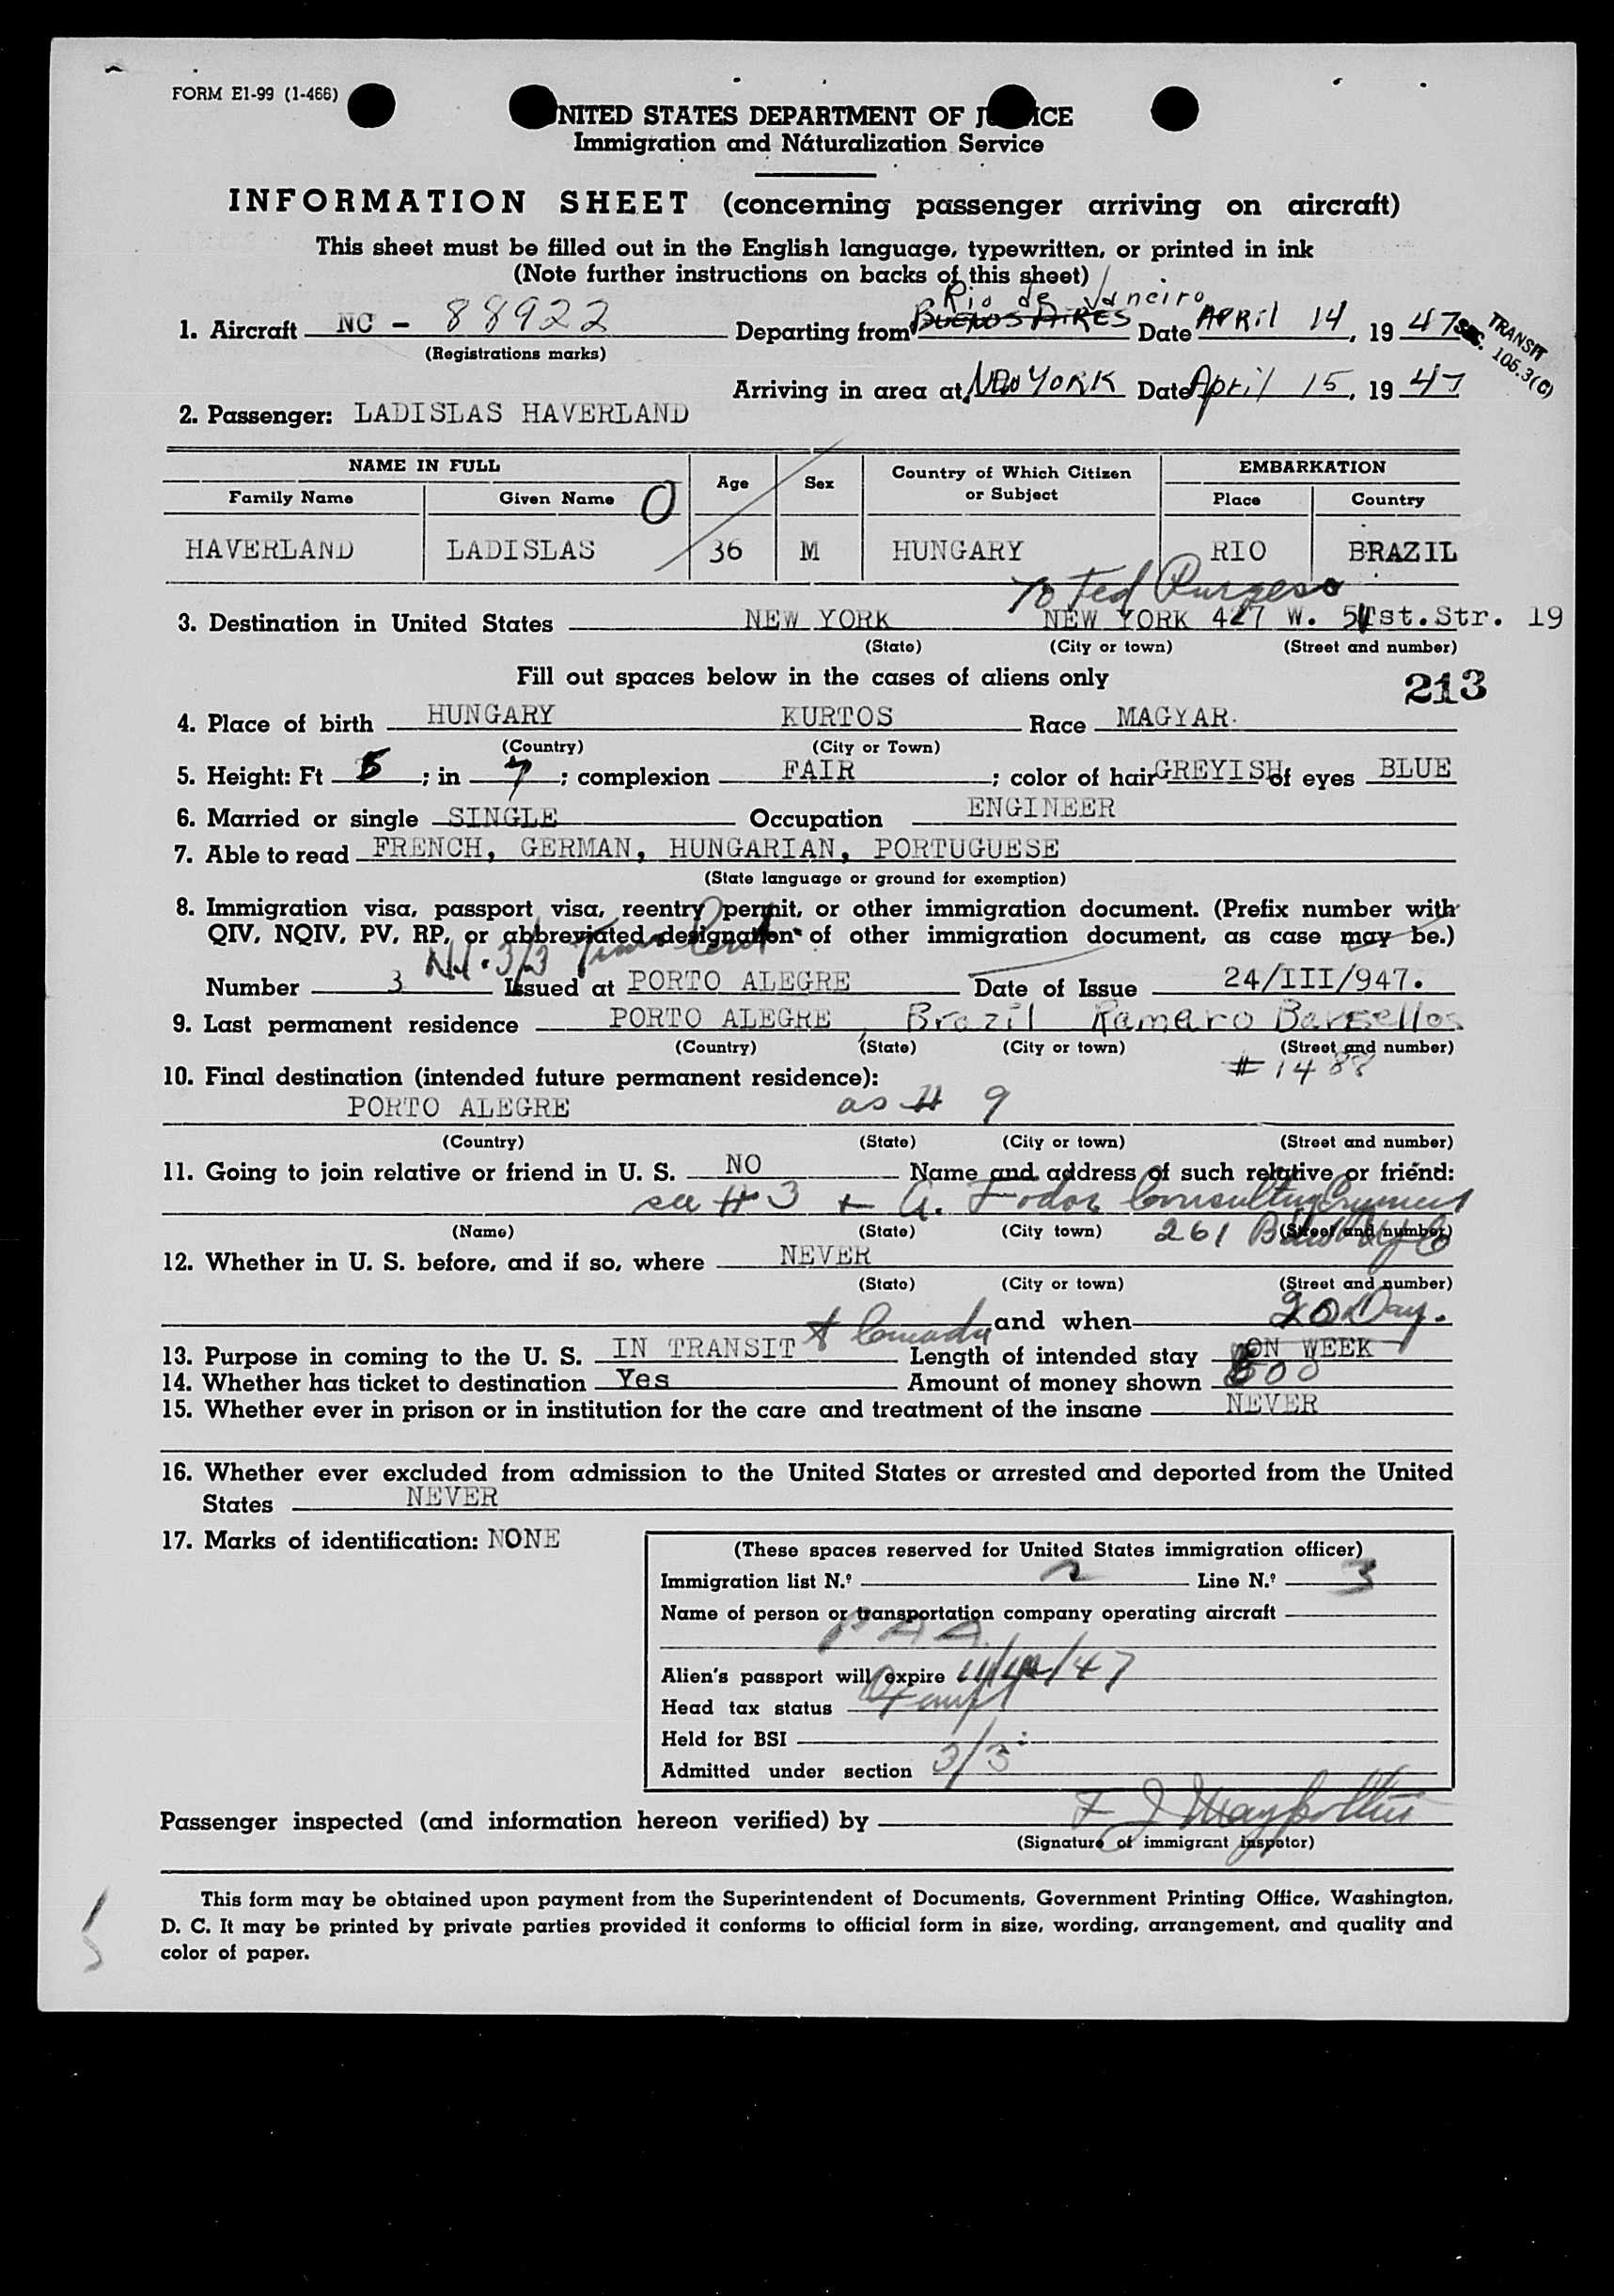 FORM E1-99 (1-466)
UNITED STATES DEPARTMENT OF JUSTICE
Immigration and Náturalization Service
INFORMATION SHEET (concerning passenger arriving on aircraft)
This sheet must be filled out in the English language, typewritten, or printed in ink
(Note further instructions on backs of this sheet)
Rio de Janeiro
1. Aircraft NC - 88922 Departing from BUENOS AIRES Date APRil 14, 19 47
TRANSIT
SEC. 105.3(C)
(Registrations marks)
Arriving in area at New YORK Date April 15, 19 47
2. Passenger: LADISLAS HAVERLAND
NAME IN FULL Age Sex Country of Which Citizen or Subject EMBARKATION
Family Name Given Name O Place Country
HAVERLAND LADISLAS 36 M HUNGARY RIO BRAZIL
To Ted Purgess
3. Destination in United States NEW YORK NEW YORK 427 W. 51st.Str. 19
(State) (City or town) (Street and number)
Fill out spaces below in the cases of aliens only
213
4. Place of birth HUNGARY KURTOS Race MAGYAR.
(Country) (City or Town)
5. Height: Ft 5; in 7; complexion FAIR; color of hair GREYISH of eyes BLUE
6. Married or single SINGLE Occupation ENGINEER
7. Able to read FRENCH, GERMAN, HUNGARIAN, PORTUGUESE
(State language or ground for exemption)
8. Immigration visa, passport visa, reentry permit, or other immigration document. (Prefix number with
QIV, NQIV, PV, RP, or abbreviated designation of other immigration document, as case may be.)
3/3
Number 3 Issued at PORTO ALEGRE Date of Issue 24/III/947.
9. Last permanent residence PORTO ALEGRE, Brazil Ramaro Barsellos
(Country) (State) (City or town) (Street and number)
# 1488
10. Final destination (intended future permanent residence):
PORTO ALEGRE as # 9
(Country) (State) (City or town) (Street and number)
11. Going to join relative or friend in U. S. NO Name and address of such relative or friénd:
see # 3 + A. Fodor Consulting
(Name) (State) (City town) (Street and number)
261 Bdway
12. Whether in U. S. before, and if so, where NEVER
(State) (City or town) (Street and number)
and when
20 Day.
13. Purpose in coming to the U. S. IN TRANSIT to Canada Length of intended stay ON WEEK
14. Whether has ticket to destination Yes Amount of money shown 500
15. Whether ever in prison or in institution for the care and treatment of the insane NEVER
16. Whether ever excluded from admission to the United States or arrested and deported from the United
States NEVER
17. Marks of identification: NONE
(These spaces reserved for United States immigration officer)
Immigration list N.º 2 Line N.º 3
Name of person or transportation company operating aircraft
PAA
Alien's passport will expire
Head tax status
Held for BSI
Admitted under section 3/3
Passenger inspected (and information hereon verified) by
(Signature of immigrant inspotor)
This form may be obtained upon payment from the Superintendent of Documents, Government Printing Office, Washington,
D. C. It may be printed by private parties provided it conforms to official form in size, wording, arrangement, and quality and
color of paper.